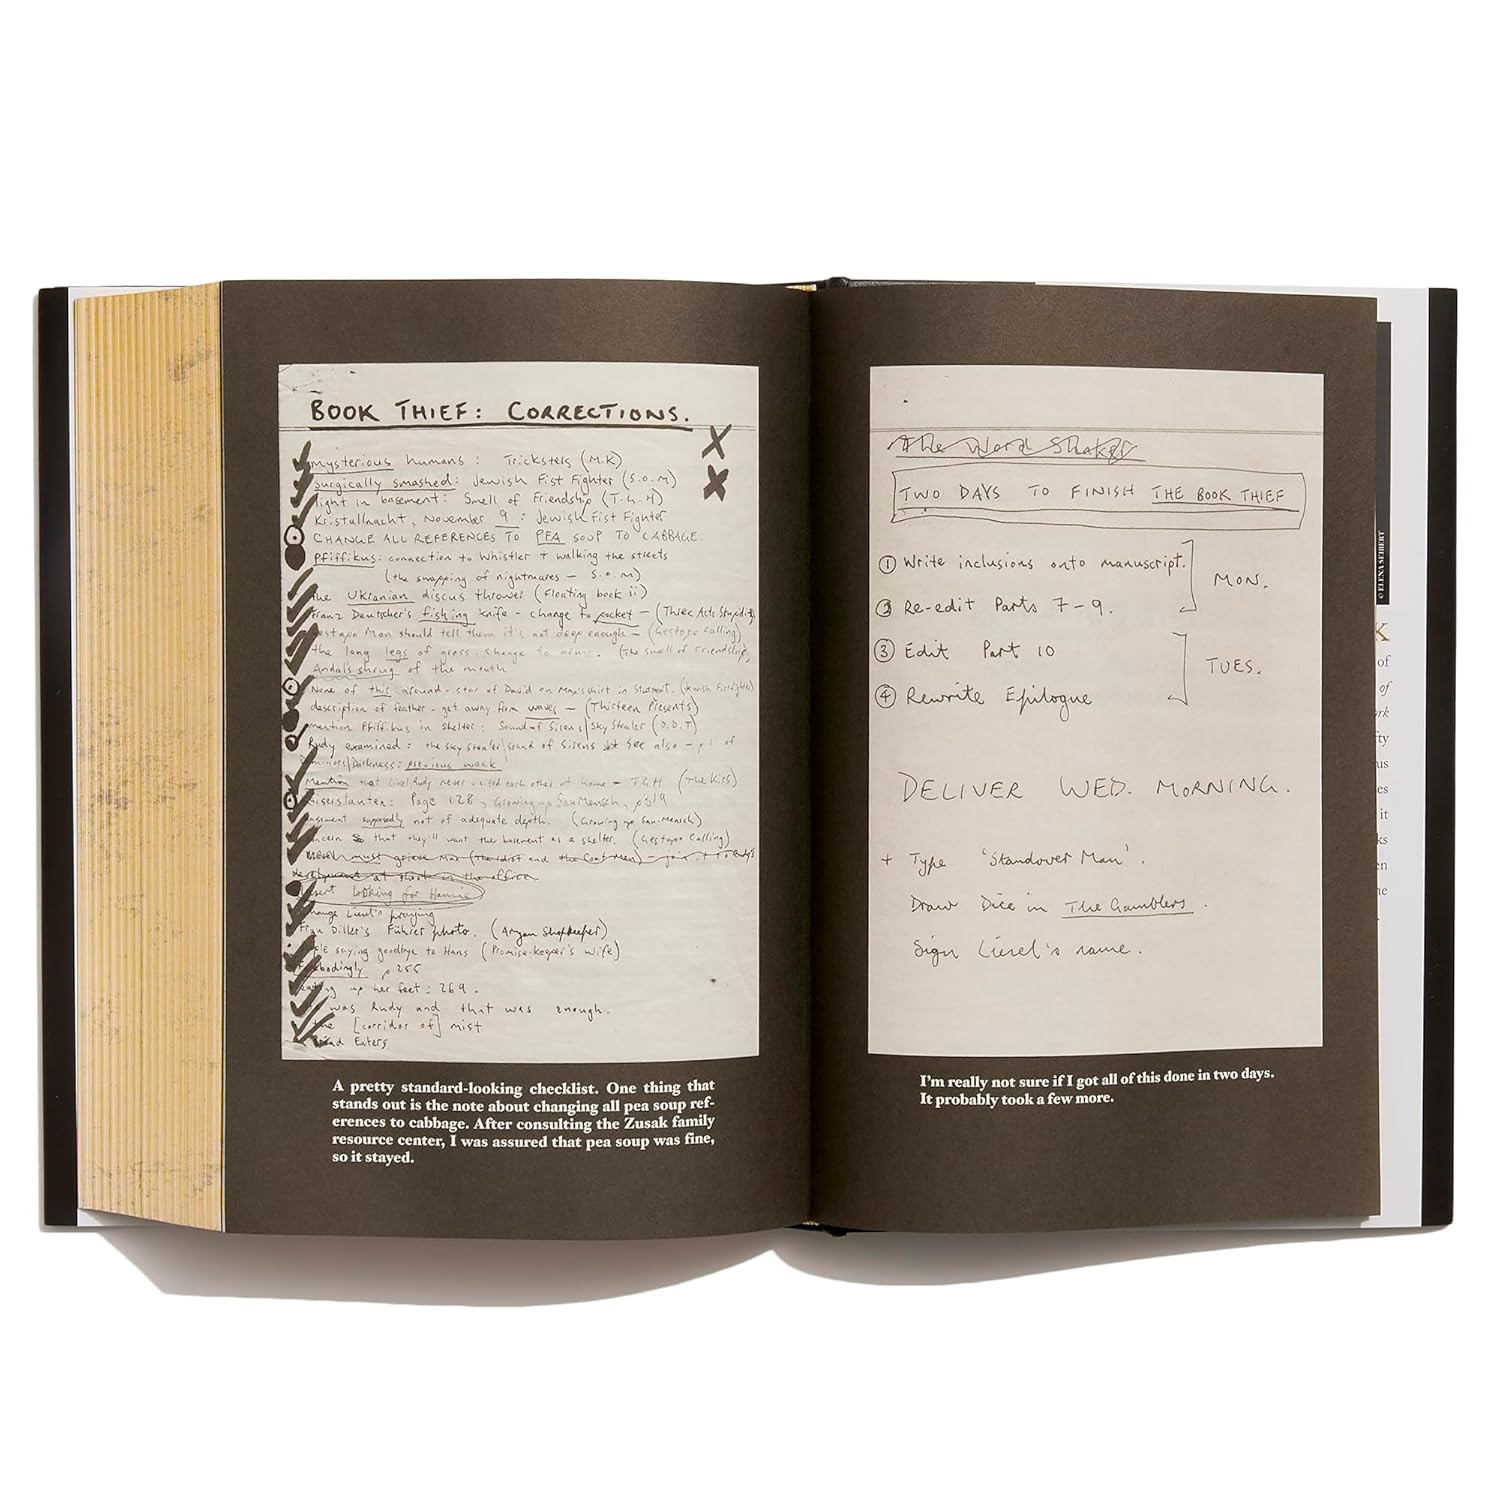 BOOK THIEF: CORRECTIONS.
mysterious humans: Tricksters (M.K)
surgically smashed: Jewish Fist Fighter (S.O.M)
light in basement: Smell of Friendship (T.G.H)
Kristallnacht, November 9: Jewish Fist Fighter
CHANGE ALL REFERENCES TO PEA SOUP TO CABBAGE.
Pfiffikus: connection to whistler + walking the streets
(the swapping of nightmares - S.O.M)
the Ukranian discus thrower (Floating book ii)
Franz Deutscher's fishing knife - change to pocket - (Three Acts Stupidity)
Gestapo Man should tell them it's not deep enough - (Gestapo Calling)
the long legs of grass. change to arms. (The Smell of Friendship)
shrug of the mouth
None of this around - star of David on Max's shirt in Stuttgart. (Jewish Fistfighter)
description of feather - get away from waves - (Thirteen Presents)
mention Pfiffikus in shelter: Sound of Sirens/Sky Stealer (D.D.T)
Rudy examined: the sky stealer/sound of sirens see also - p1 of
Dominoes/Darkness: previous week
Mention that Liesel/Rudy never visited each other at home - TGH (The Kiss)
Page 128, Growing up Saumensch, p319
basement supposedly not of adequate depth. (Growing up Saumensch)
that they'll want the basement as a shelter. (Gestapo Calling)
must grieve Max (The Idiot and the Coat Men) - join it to Rudy's
at the office
insert looking for Hannie
change Liesel's praying
Frau Diller's Führer photo. (Aryan Shopkeeper)
saying goodbye to Hans (Promise-keeper's Wife)
Forebodingly p 255
eating up her feet: 269.
was Rudy and that was enough.
the [corridor of] mist
Bread Eaters
A pretty standard-looking checklist. One thing that
stands out is the note about changing all pea soup ref-
erences to cabbage. After consulting the Zusak family
resource center, I was assured that pea soup was fine,
so it stayed.
The Word Shaker
TWO DAYS TO FINISH THE BOOK THIEF
① Write inclusions onto manuscript.
MON.
② Re-edit Parts 7-9.
③ Edit Part 10
TUES.
④ Rewrite Epilogue
DELIVER WED. MORNING.
+ Type 'Standover Man'.
Draw Dice in The Gamblers.
Sign Liesel's name.
I'm really not sure if I got all of this done in two days.
It probably took a few more.
© ELENA SEIBERT
K
of
of
rk
fty
us
es
it
ks
en
he